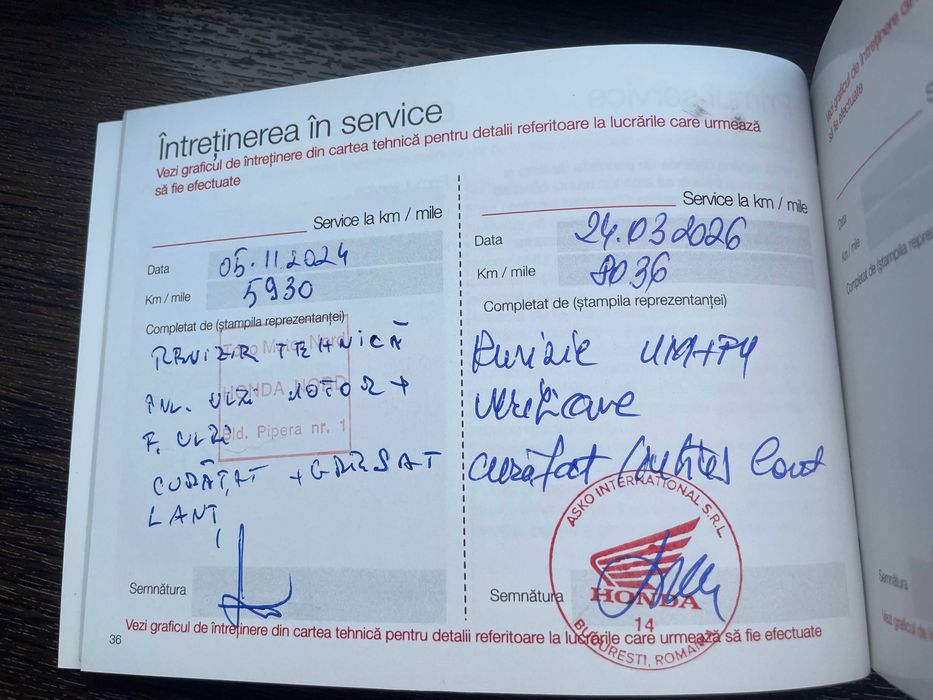 Întreținerea în service
Vezi graficul de întreținere din cartea tehnică pentru detalii referitoare la lucrările care urmează
să fie efectuate
Service la km / mile
Data 05.11.2024
Km / mile 5930
Completat de (ștampila reprezentanței)
REVIZIE TEHNICĂ
Moto Nord
HONDA NORD
Bld. Pipera nr. 1
ULEI MOTOR +
F. ULEI
CURĂȚAT + GRESAT
LANȚ
Semnătura
Service la km / mile
Data 24.03 2026
Km / mile 8036
Completat de (ștampila reprezentanței)
Revizie
verificare
curățat lanț
Semnătura
ASKO INTERNATIONAL S.R.L
HONDA
14
BUCUREȘTI, ROMANIA
Vezi graficul de întreținere din cartea tehnică pentru detalii referitoare la lucrările care urmează să fie efectuate
36
Vezi graficul de întreținere din
să fie efectuate
Data
Km / mile
Completat de (ștampila
Semnătura
Vezi graficul de